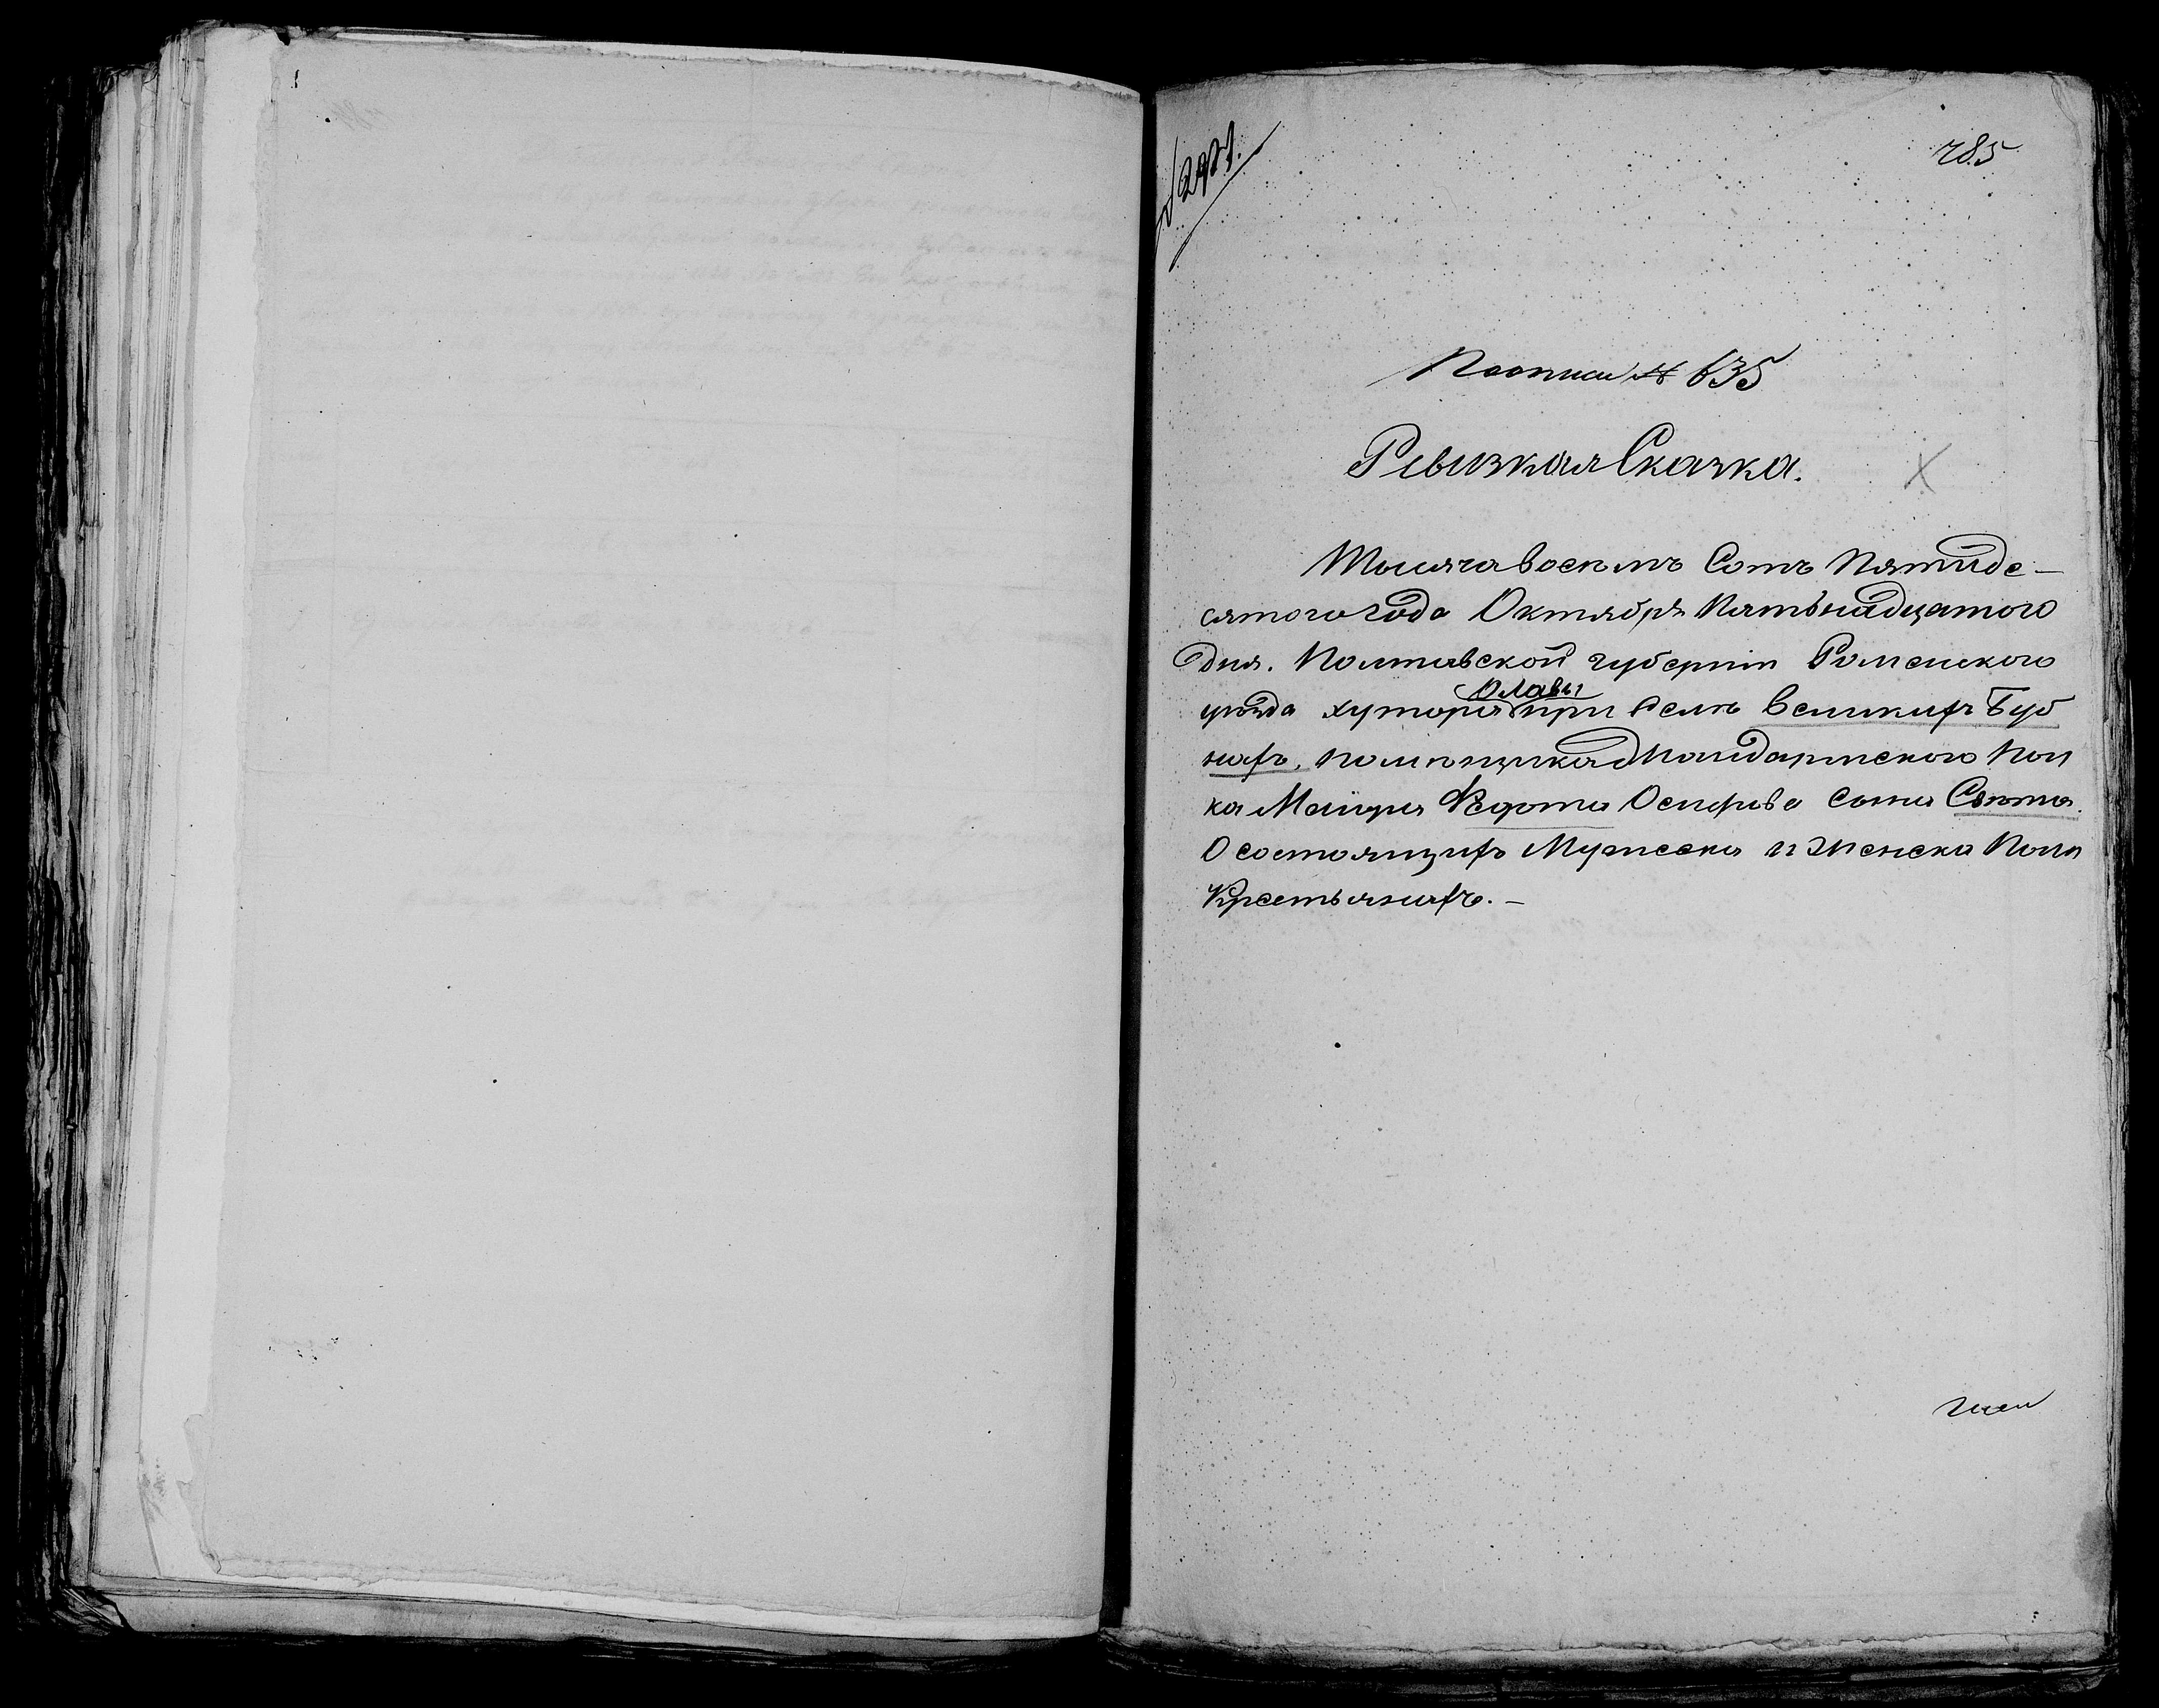 285
По описи № 635
Ревизкая Сказка.
Тысяча восемъ Сотъ Пятиде-
сятого года Октября Пятьнадцатого
дня. Полтавской губерніи Роменского
уѣзда хутора при селѣ Великихъ Буб
нахъ, помѣщика Жандармского Пол
ка Маіора Федота Осипова сына
О состоящихъ Мужеска и Женска Пола
Крестьянахъ. —